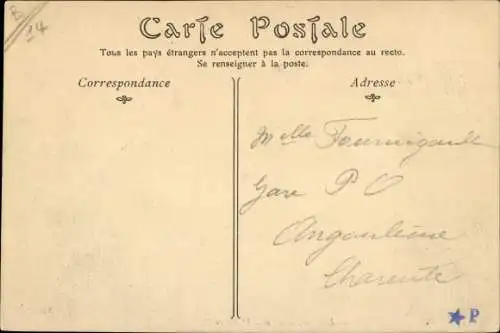 Carte Postale
Tous les pays étrangers n'acceptent pas la correspondance au recto.
Se renseigner à la poste.
Correspondance
Adresse
14
Melle Fournigault
Gare P O
Angoulême
Charente
★P